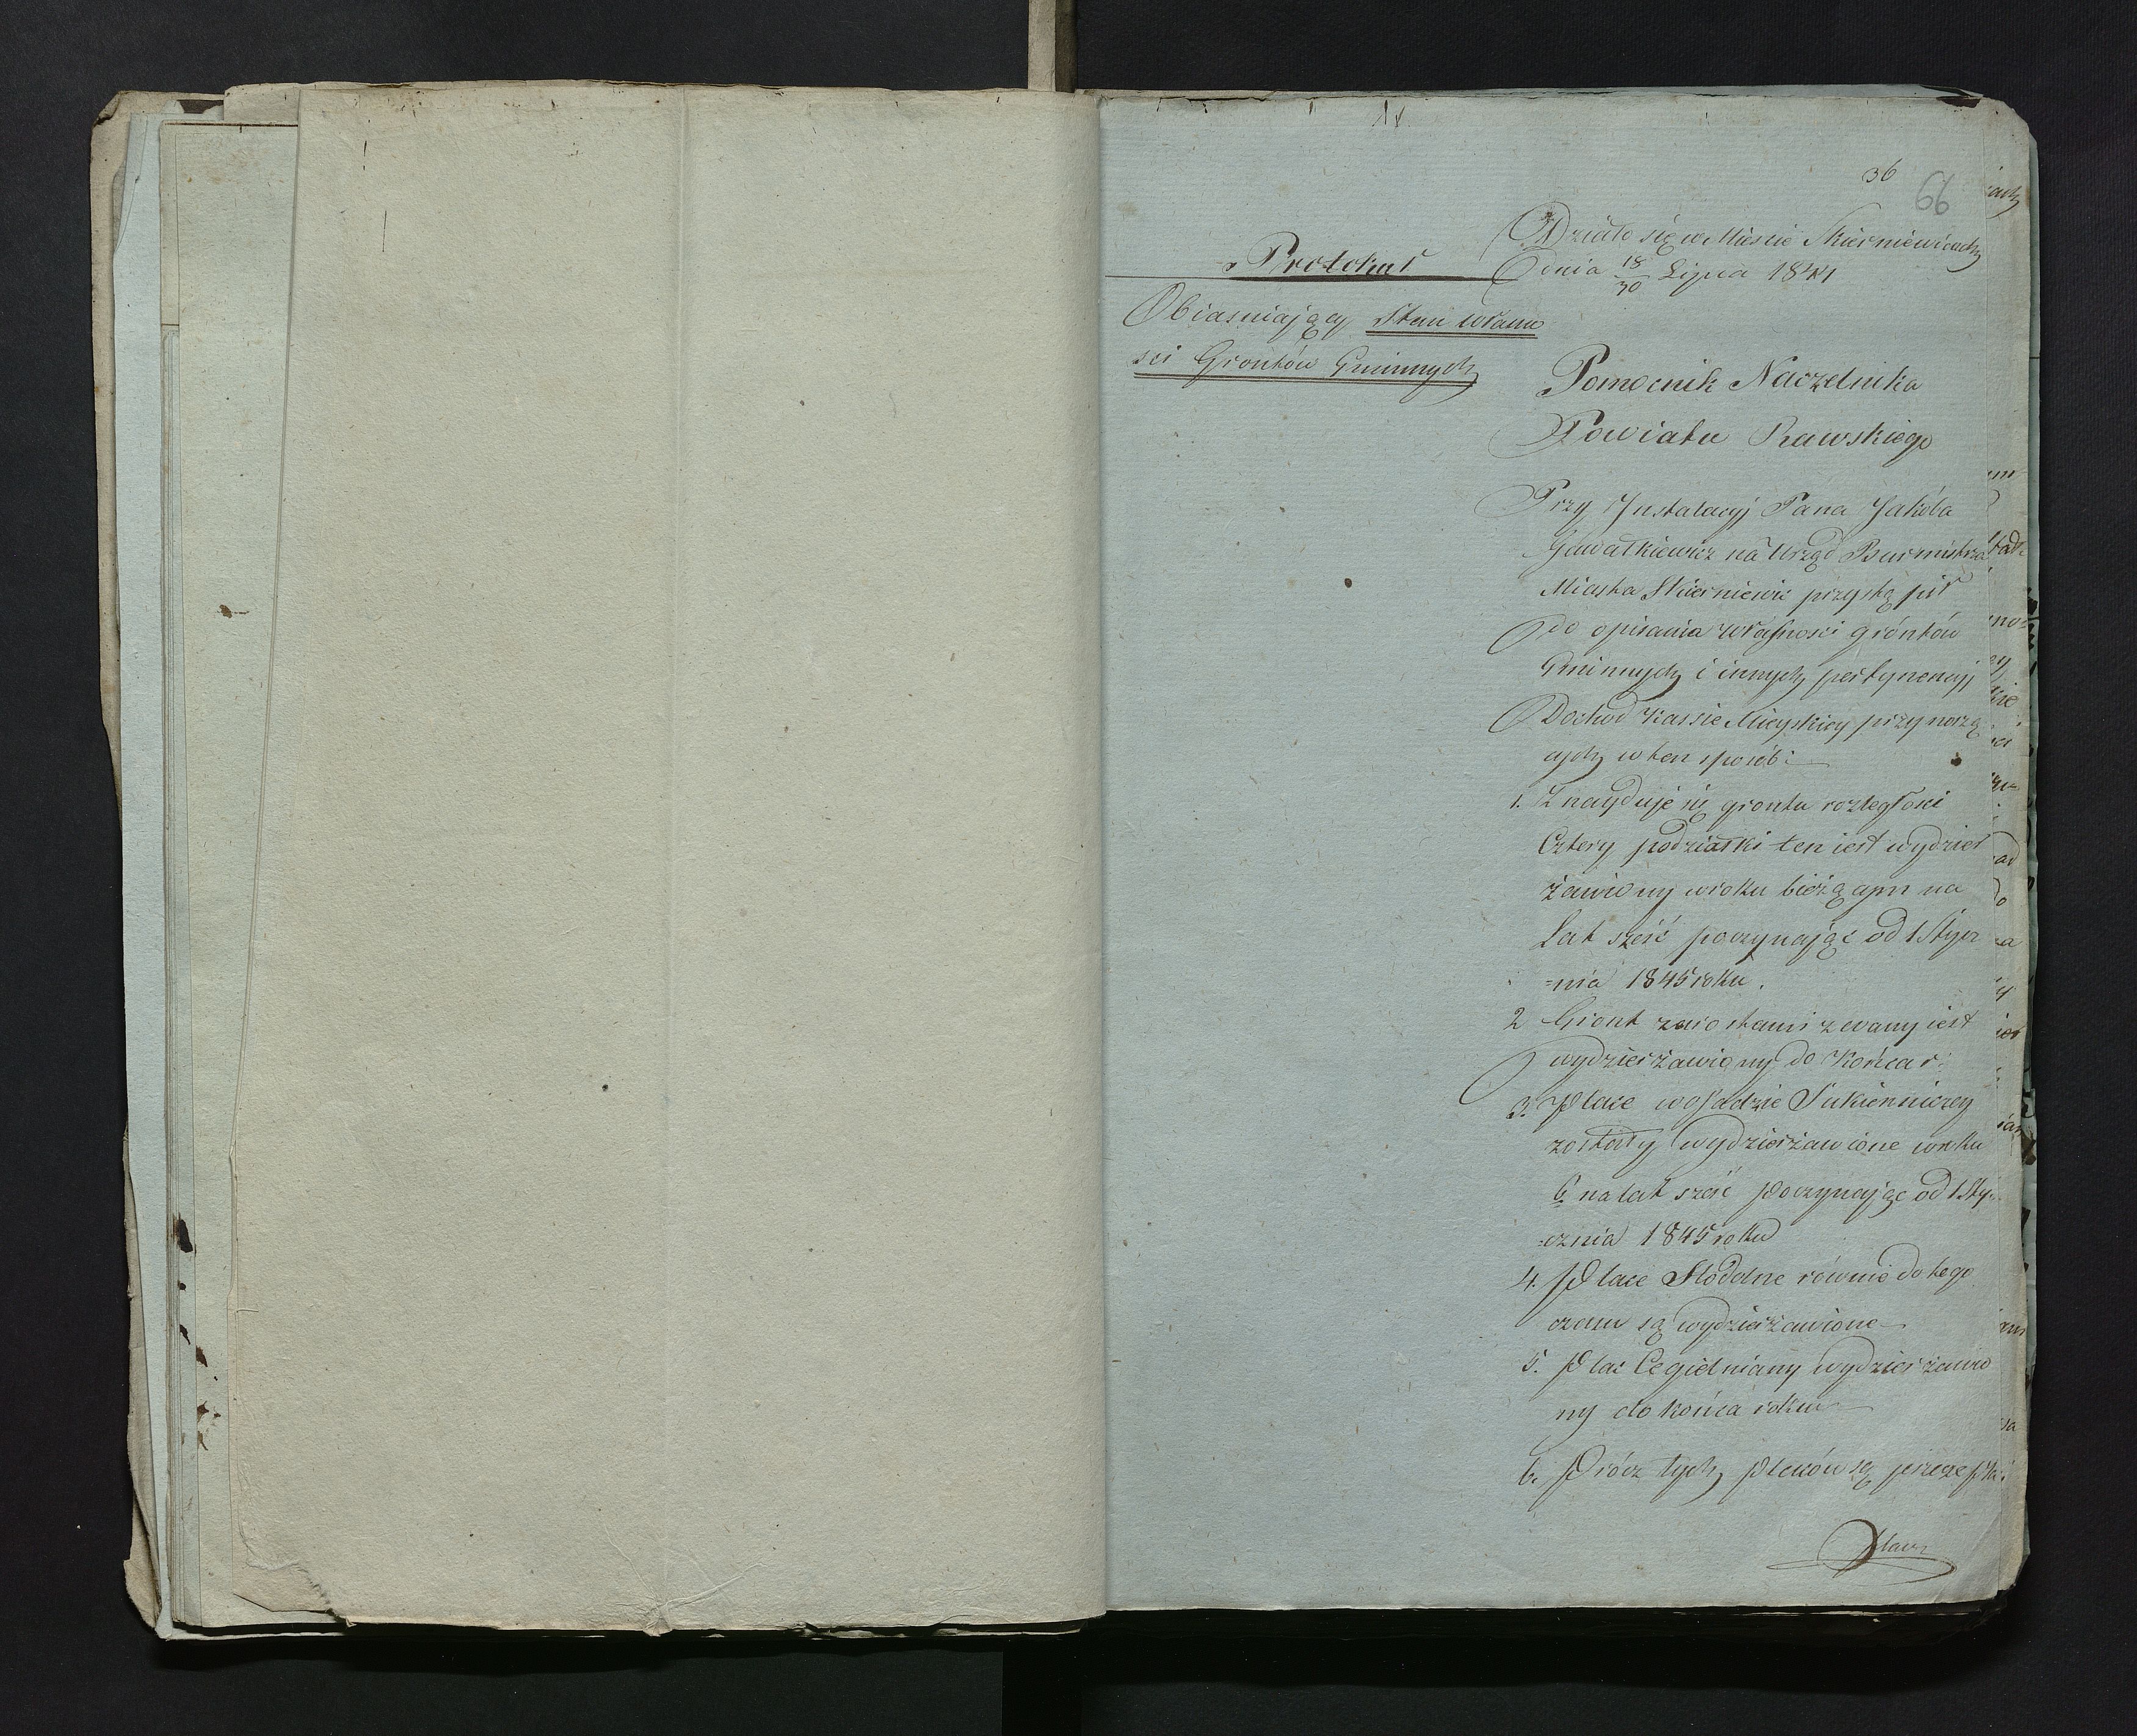 36
66
Działo się w Mieście Skierniewicach
dnia 18/30 Lipca 1841
Protokuł
Obiasniający Stan własno
sci Grontów Gminnych
Pomocnik Naczelnika
Powiatu Rawskiego
Przy Instalacyj Pana Jakóba
Gawałkiewicz na Urząd Burmistrza
Miasta Skierniewic przystą pił
do opisania własnosci gróntów
Gminnych i innych pertynencyj
Dochod Kassie Mieyskiey przynoszą
cych w ten sposób:
1. Znayduje się grontu rozległosci
Cztery podziałki ten iest wydzier
żawiony w roku bieżącym na
Lat sześć poczynając od 1 Stycz
=nia 1845 roku.
2 Gront zarostami zwany iest
wydzierżawiony do Końca r.
3. Place w osadzie Sukienniczey
zostały wydzierżawione w roku
b. na lat sześć poczynając od 1 Sty=
=cznia 1845 roku
4. Place Stodolne równie do tego
czasu są wydzierżawione
5. Plac Cegielniany wydzierżawio
ny do końca roku
6. Prócz tych placów są jeszcze